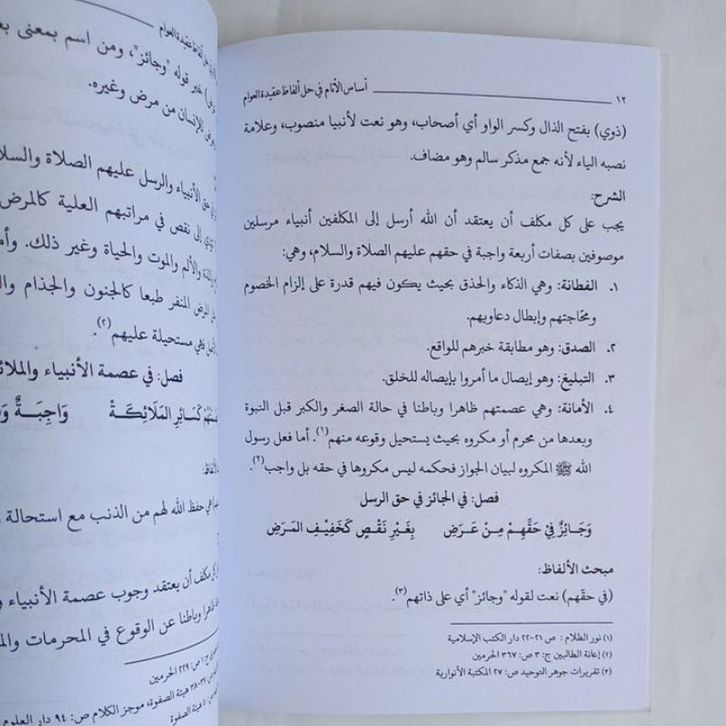 ١٢
أساس الأنام في حل ألفاظ عقيدة العوام
(ذوي) بفتح الذال وكسر الواو أي أصحاب، وهو نعت لأنبيا منصوب، وعلامة
نصبه الياء لأنه جمع مذكر سالم وهو مضاف.
الشرح:
يجب على كل مكلف أن يعتقد أن الله أرسل إلى المكلفين أنبياء مرسلين
موصوفين بصفات أربعة واجبة في حقهم عليهم الصلاة والسلام، وهي:
١. الفطانة: وهي الذكاء والحذق بحيث يكون فيهم قدرة على إلزام الخصوم
ومحاجتهم وإبطال دعاويهم.
٢. الصدق: وهو مطابقة خبرهم للواقع.
٣. التبليغ: وهو إيصال ما أمروا بإيصاله للخلق.
٤. الأمانة: وهي عصمتهم ظاهرا وباطنا في حالة الصغر والكبر قبل النبوة
وبعدها من محرم أو مكروه بحيث يستحيل وقوعه منهم(١). أما فعل رسول
الله ﷺ المكروه لبيان الجواز فحكمه ليس مكروها في حقه بل واجب(٢).
فصل: في الجائز في حق الرسل
وَجَائِزٌ فِي حَقِّهِمْ مِنْ عَرَضِ بِغَيْرِ نَقْصٍ كَخَفِيْفِ المَرَضِ
مبحث الألفاظ:
(في حقّهم) نعت لقوله "وجائز" أي على ذاتهم(٣).
(١) نور الظلام : ص ٢١-٢٢ دار الكتب الإسلامية
(٢) إعانة الطالبين ج: ٣ ص: ٣٦٧ الحرمين
(٣) تقريرات جوهر التوحيد ص: ٢٧ المكتبة الأنوارية
خبر قوله "وجائز"، ومن اسم بمعنى
للإنسان من مرض وغيره.
حق الأنبياء والرسل عليهم الصلاة
إلى نقص في مراتبهم العلية كالمرض
والألم والموت والحياة وغير ذلك.
المرض المنفر طبعا كالجنون والجذام
فهي مستحيلة عليهم(٢).
فصل: في عصمة الأنبياء
كَسَائِرِ المَلَائِكَةْ وَاجِبَةٌ
حفظ الله لهم من الذنب مع استحالة
مكلف أن يعتقد وجوب عصمة الأنبياء
ظاهرا وباطنا عن الوقوع في المحرمات
ص: ٢٢٩ الحرمين
هيئة الصفوة، موجز الكلام ص: ٩٤ دار العلوم
هيئة الصفوة